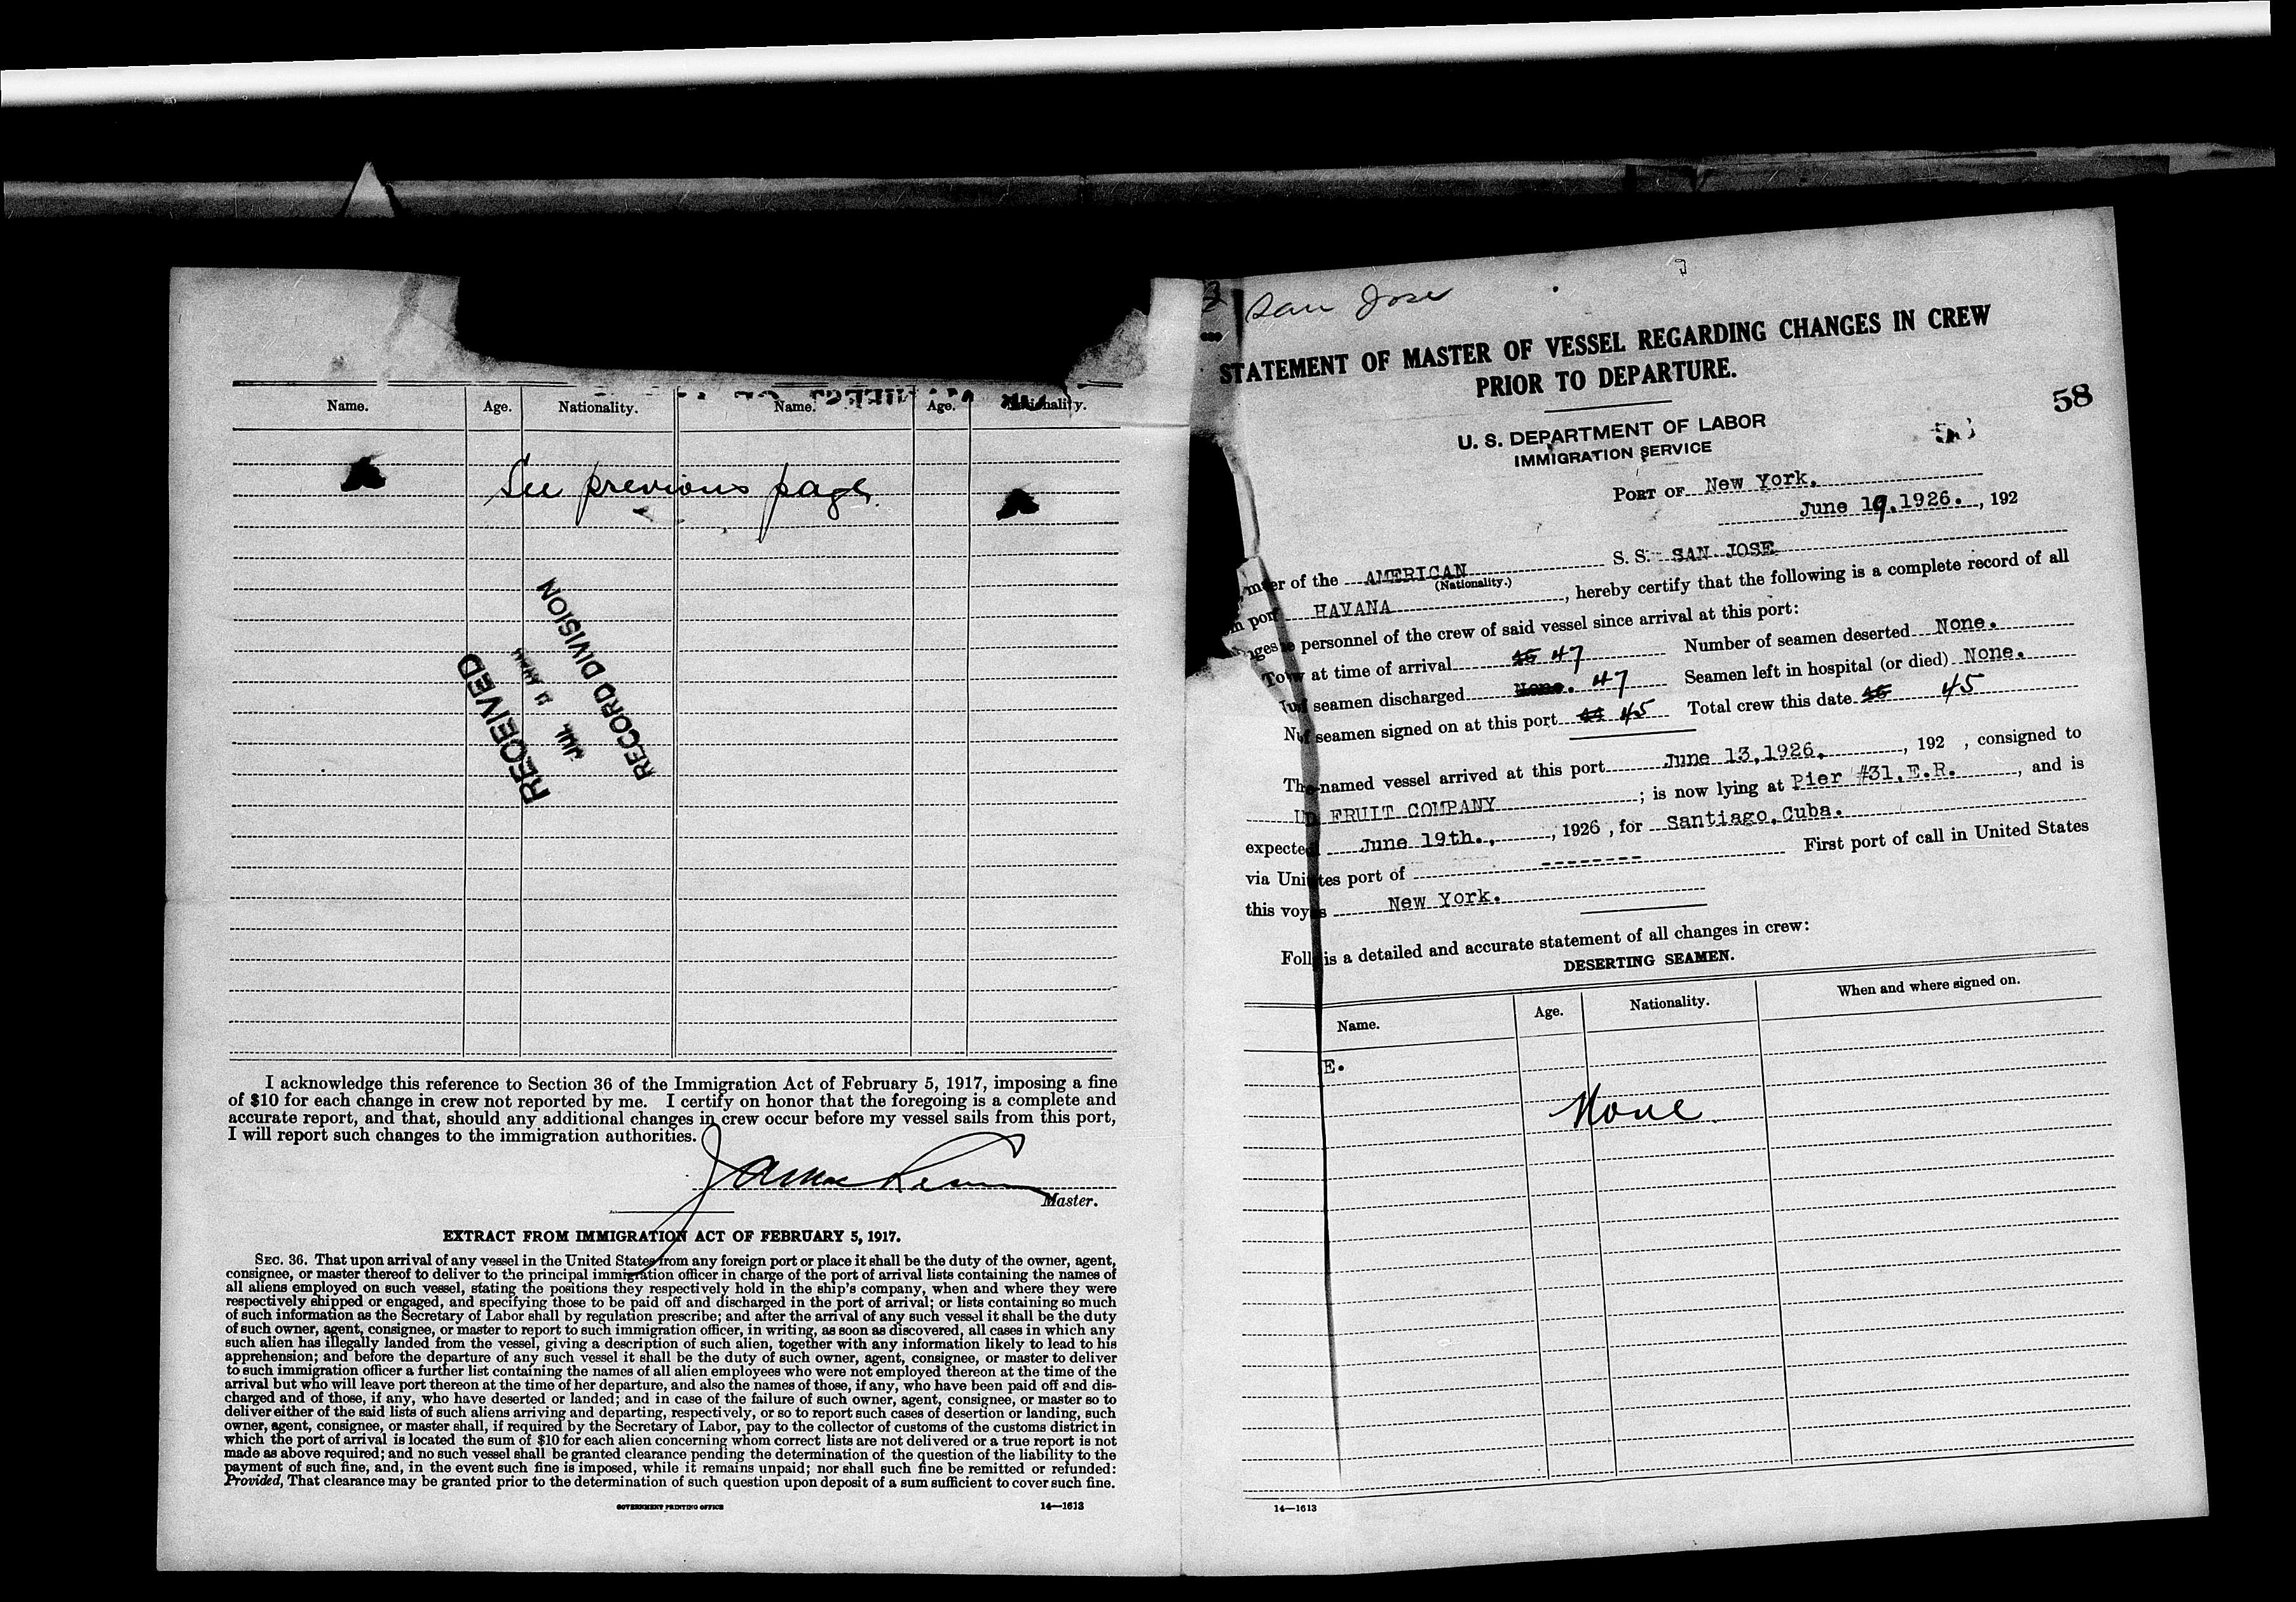 Name. Age. Nationality. Name. Age. Nationality.
See previous page.
RECEIVED
JUL
RECORD DIVISION
I acknowledge this reference to Section 36 of the Immigration Act of February 5, 1917, imposing a fine
of $10 for each change in crew not reported by me. I certify on honor that the foregoing is a complete and
accurate report, and that, should any additional changes in crew occur before my vessel sails from this port,
I will report such changes to the immigration authorities.
Master.
EXTRACT FROM IMMIGRATION ACT OF FEBRUARY 5, 1917.
SEC. 36. That upon arrival of any vessel in the United States from any foreign port or place it shall be the duty of the owner, agent,
consignee, or master thereof to deliver to the principal immigration officer in charge of the port of arrival lists containing the names of
all aliens employed on such vessel, stating the positions they respectively hold in the ship's company, when and where they were
respectively shipped or engaged, and specifying those to be paid off and discharged in the port of arrival; or lists containing so much
of such information as the Secretary of Labor shall by regulation prescribe; and after the arrival of any such vessel it shall be the duty
of such owner, agent, consignee, or master to report to such immigration officer, in writing, as soon as discovered, all cases in which any
such alien has illegally landed from the vessel, giving a description of such alien, together with any information likely to lead to his
apprehension; and before the departure of any such vessel it shall be the duty of such owner, agent, consignee, or master to deliver
to such immigration officer a further list containing the names of all alien employees who were not employed thereon at the time of the
arrival but who will leave port thereon at the time of her departure, and also the names of those, if any, who have been paid off and dis-
charged and of those, if any, who have deserted or landed; and in case of the failure of such owner, agent, consignee, or master so to
deliver either of the said lists of such aliens arriving and departing, respectively, or so to report such cases of desertion or landing, such
owner, agent, consignee, or master shall, if required by the Secretary of Labor, pay to the collector of customs of the customs district in
which the port of arrival is located the sum of $10 for each alien concerning whom correct lists are not delivered or a true report is not
made as above required; and no such vessel shall be granted clearance pending the determination of the question of the liability to the
payment of such fine, and, in the event such fine is imposed, while it remains unpaid; nor shall such fine be remitted or refunded:
Provided, That clearance may be granted prior to the determination of such question upon deposit of a sum sufficient to cover such fine.
GOVERNMENT PRINTING OFFICE 14—1613
San Jose
STATEMENT OF MASTER OF VESSEL REGARDING CHANGES IN CREW
PRIOR TO DEPARTURE.
58
U. S. DEPARTMENT OF LABOR
IMMIGRATION SERVICE
PORT OF New York.
June 19, 1926. , 192
er of the AMERICAN S. S. SAN JOSE
(Nationality.)
port HAVANA , hereby certify that the following is a complete record of all
personnel of the crew of said vessel since arrival at this port:
at time of arrival 47 Number of seamen deserted None.
seamen discharged None. 47 Seamen left in hospital (or died) None.
seamen signed on at this port 45 Total crew this date 45
named vessel arrived at this port June 13, 1926. , 192 , consigned to
FRUIT COMPANY ; is now lying at Pier #31, E.R. , and is
expected June 19th. , 1926 , for Santiago, Cuba.
via Uni tes port of -------- First port of call in United States
this voy New York.
Foll is a detailed and accurate statement of all changes in crew:
DESERTING SEAMEN.
Name. Age. Nationality. When and where signed on.
E.
None
14—1613